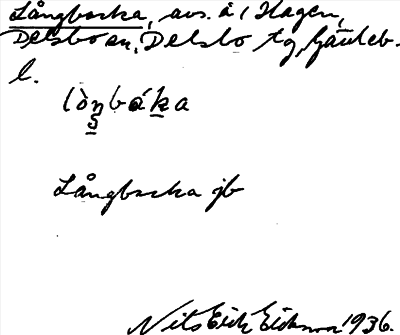 Långbacka, avs. å 1 Hagen,
Delsbo sn, Delsbo tg, Gävleb.
l.
lòŋbáka
Långbacka jb
Nils Erik Eriksson 1936.